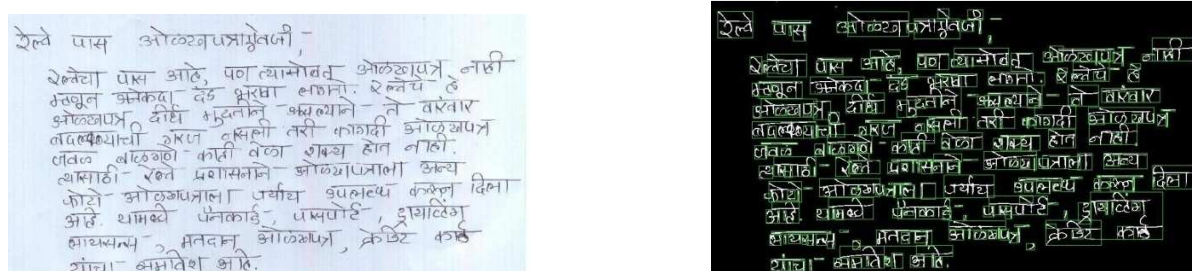 रेल्वे पास ओळखपत्राऐवजी,
रेल्वेचा पास आहे, पण त्यासोबत ओळखपत्र नाही
म्हणून अनेकदा दंड भरावा लागतो. रेल्वेचे हे
ओळखपत्र दीर्घ मुदतीने असल्याने ते वारंवार
बदलण्याची गरज नसली तरी कागदी ओळखपत्र
जवळ बाळगणे काही वेळा शक्य होत नाही.
त्यासाठी रेल्वे प्रशासनाने ओळखपत्राला अन्य
फोटो ओळखपत्राला पर्याय उपलब्ध करून दिला
आहे. यामध्ये पॅनकार्ड, पासपोर्ट, ड्रायव्हिंग
लायसन्स, मतदान ओळखपत्र, क्रेडिट कार्ड
यांचा समावेश आहे.
रेल्वे पास ओळखपत्राऐवजी,
रेल्वेचा पास आहे, पण त्यासोबत ओळखपत्र नाही
म्हणून अनेकदा दंड भरावा लागतो. रेल्वेचे हे
ओळखपत्र दीर्घ मुदतीने असल्याने ते वारंवार
बदलण्याची गरज नसली तरी कागदी ओळखपत्र
जवळ बाळगणे काही वेळा शक्य होत नाही.
त्यासाठी रेल्वे प्रशासनाने ओळखपत्राला अन्य
फोटो ओळखपत्राला पर्याय उपलब्ध करून दिला
आहे. यामध्ये पॅनकार्ड, पासपोर्ट, ड्रायव्हिंग
लायसन्स, मतदान ओळखपत्र, क्रेडिट कार्ड
यांचा समावेश आहे.